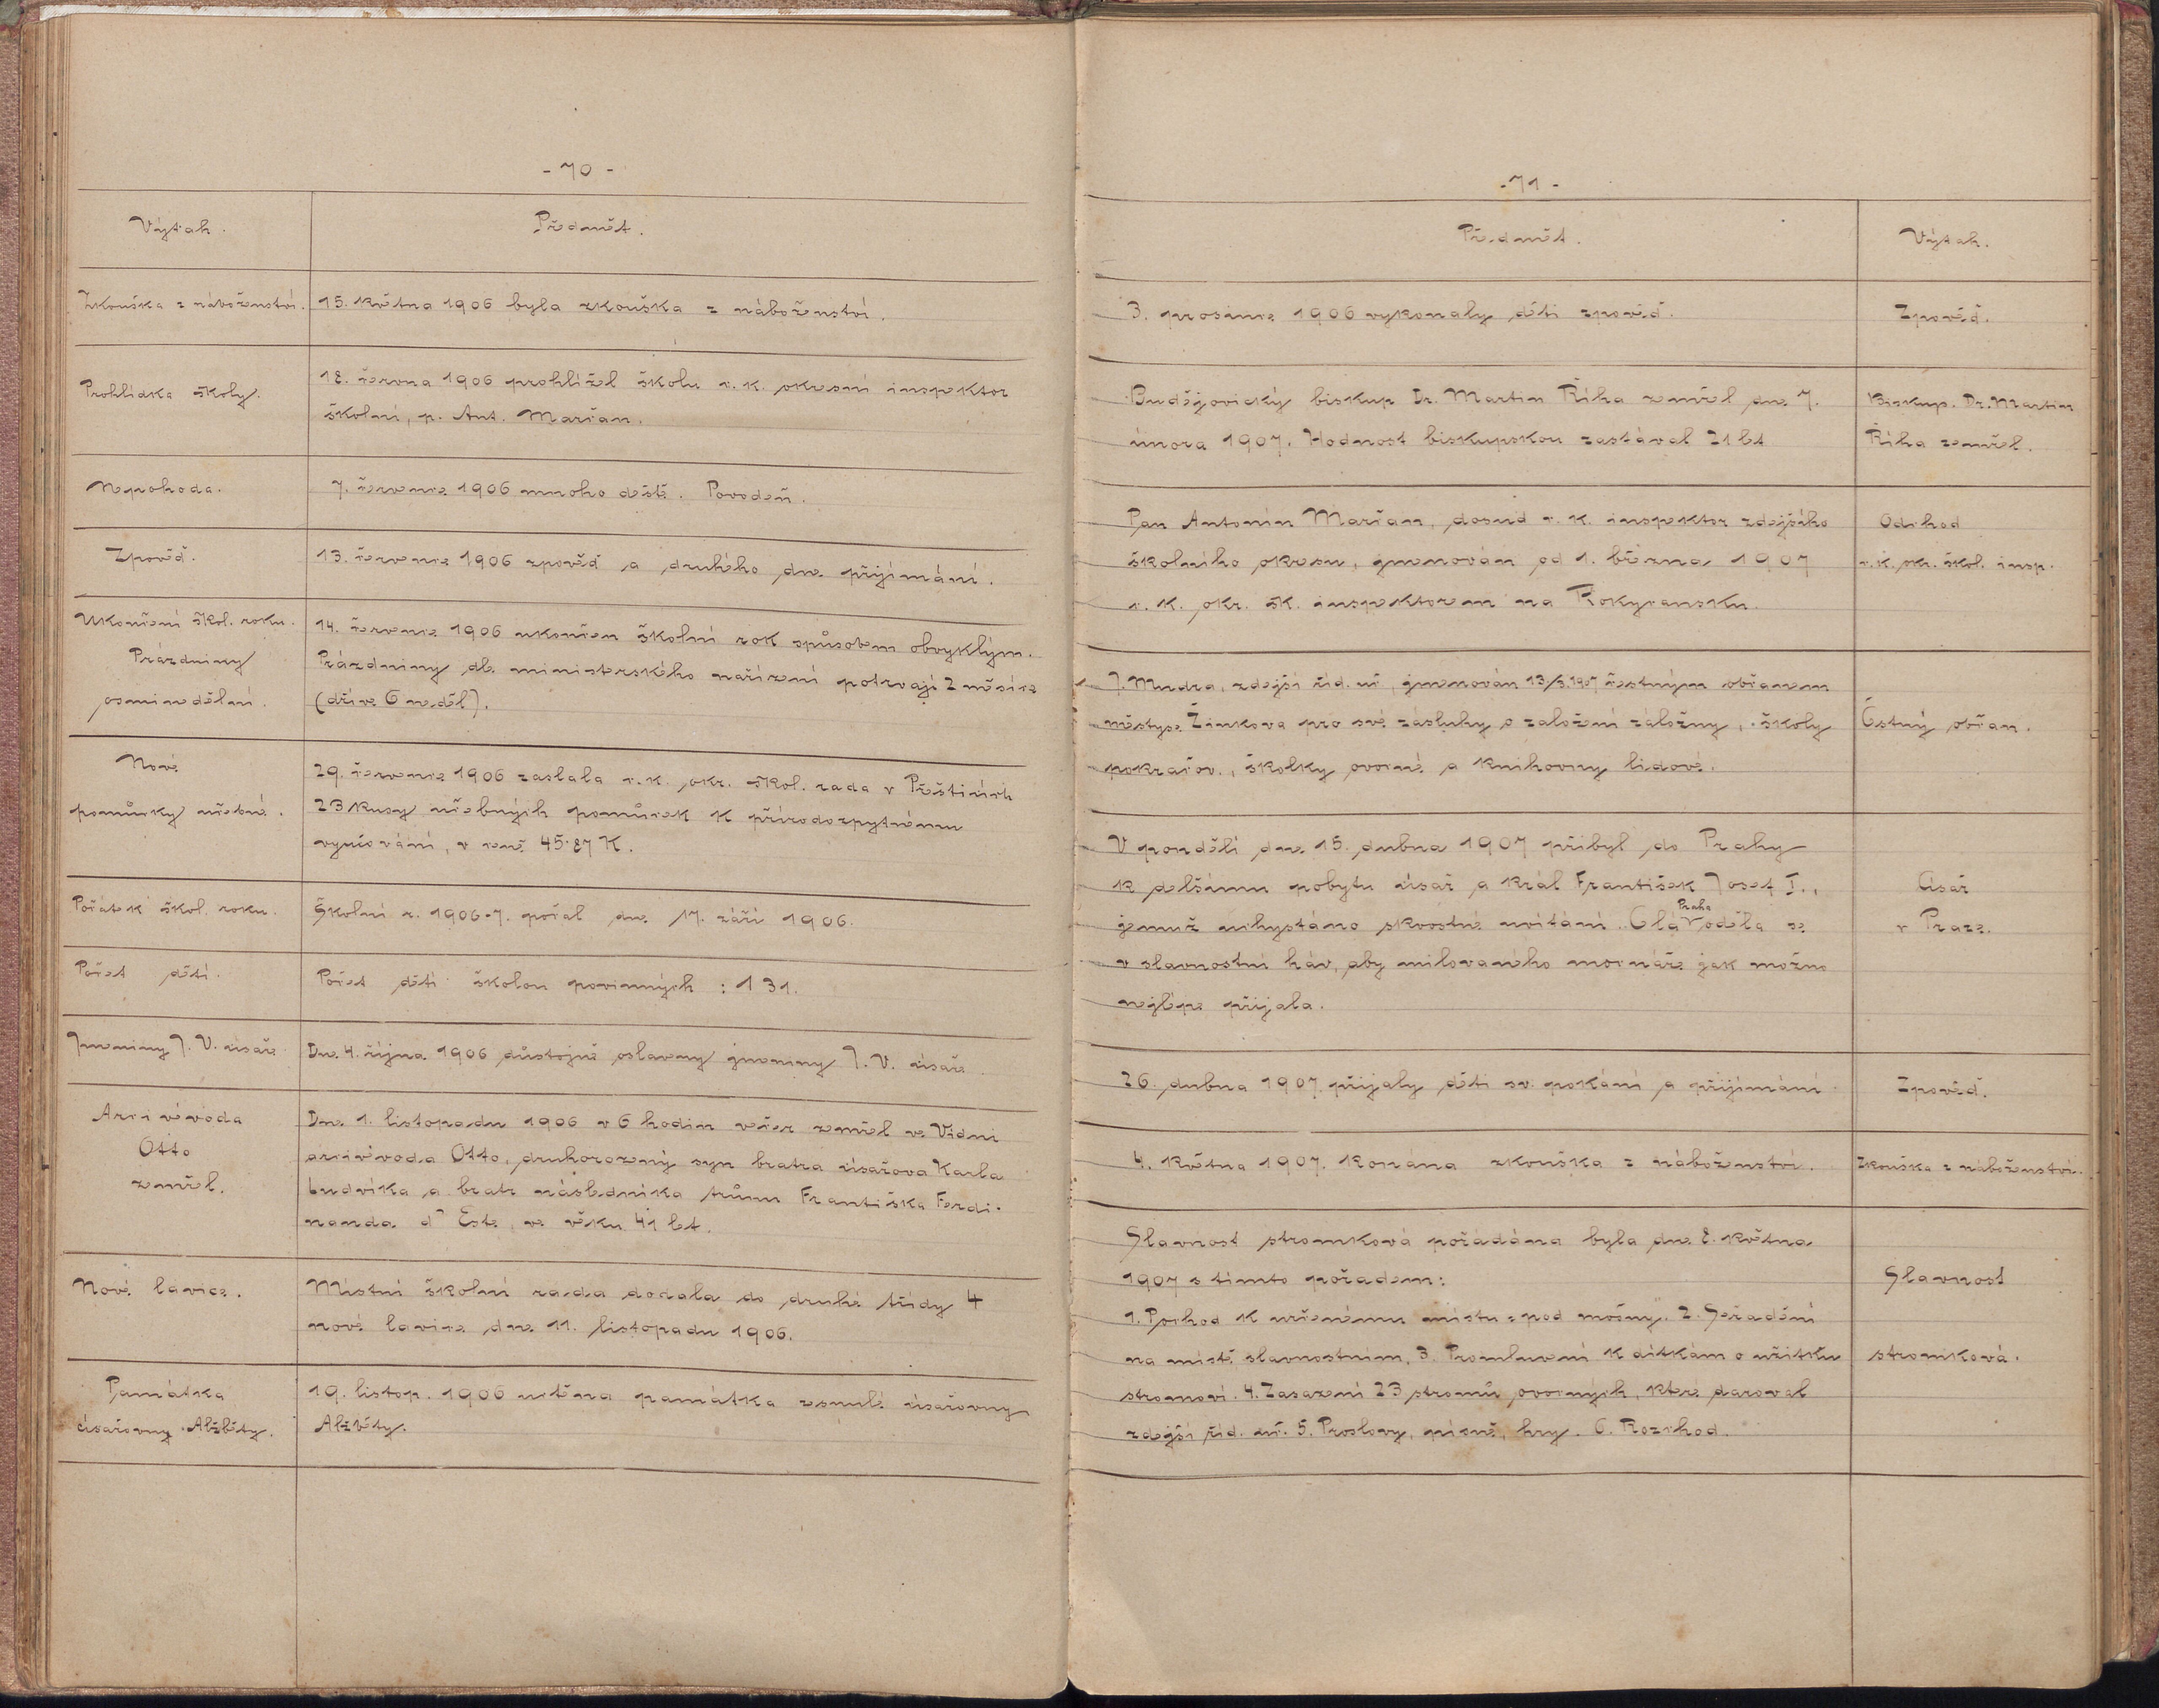 - 70 -
Výtah.
Předmět.
Zkouška z náboženství.
15. května 1906 byla zkouška z náboženství.
Prohlídka školy.
18. června 1906 prohlížel školu c. k. okresní inspektor
školní, p. Ant. Mařan.
Nepohoda.
7. července 1906 mnoho deště. Povodeň.
Zpověď.
13. července 1906 zpověď a druhého dne přijímání.
Ukončení škol. roku.
Prázdniny
osminedělní.
14. července 1906 ukončen školní rok spůsobem obvyklým.
Prázdniny dle ministerského nařízení potrvají 2 měsíce
(dříve 6 neděl).
Nové
pomůcky učebné.
29. července 1906 zaslala c. k. okr. škol. rada v Přešticích
23 kusy učebných pomůcek k přírodozpytnému
vyučování, v ceně 45·87 K.
Počátek škol. roku.
Školní r. 1906-7. počal dne 17. září 1906.
Počet dětí.
Počet dětí školou povinných : 131.
Jmeniny J. V. císaře.
Dne 4. října 1906 důstojně oslaveny jmeniny J. V. císaře.
Arcivévoda
Otto
zemřel.
Dne 1. listopadu 1906 v 6 hodin večer zemřel ve Vídni
arcivévoda Otto, druhorozený syn bratra císařova Karla
Ludvíka a bratr následníka trůnu Františka Ferdi-
nanda d' Este, ve věku 41 let.
Nové lavice.
Místní školní rada dodala do druhé třídy 4
nové lavice dne 11. listopadu 1906.
Památka
císařovny Alžběty.
19. listop. 1906 uctěna památka zesnulé císařovny
Alžběty.
- 71 -
Předmět.
Výtah.
3. prosince 1906 vykonaly děti zpověď.
Zpověď.
Budějovický biskup Dr. Martin Říha zemřel dne 7.
února 1907. Hodnost biskupskou zastával 21 let
Biskup. Dr. Martin
Říha zemřel.
Pan Antonín Mařan, dosud c. k. inspektor zdejšího
školního okresu, jmenován od 1. března 1907
c. k. okr. šk. inspektorem na Rokycansku.
Odchod
c. k. okr. škol. insp.
J. Mudra, zdejší říd. uč., jmenován 13/3. 1907 čestným občanem
městyse Žinkova pro své zásluhy o založení záložny, školy
pokračov., školky ovocné a knihovny lidové.
Čstný občan.
V pondělí dne 15. dubna 1907 přibyl do Prahy
k delšímu pobytu císař a král František Josef I.,
jemuž uchystáno skvostné uvítání. Celá Praha oděla se
v slavnostní háv, aby milovaného mocnáře jak možno
nejlépe přijala.
Císař
v Praze.
26. dubna 1907. přijaly děti sv. pokání a přijímání.
Zpověď.
4. května 1907. konána zkouška z náboženství.
Zkouška z náboženství.
Slavnost stromková pořádána byla dne 8. května
1907 s tímto pořadem:
1. Pochod k určenému místu „pod močny". 2. Seřadění
na místě slavnostním, 3. Promluvení k dítkám o užitku
stromoví. 4. Zasazení 23 stromů ovocných, které daroval
zdejší říd. uč. 5. Proslovy, písně, hry. 6. Rozchod.
Slavnost
stromková.